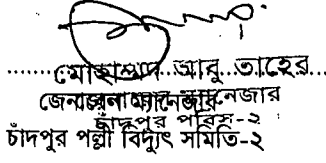 মোহাম্মদ আবু তাহের
জেনারেল ম্যানেজার
চাঁদপুর পবিস-২
চাঁদপুর পল্লী বিদ্যুৎ সমিতি-২